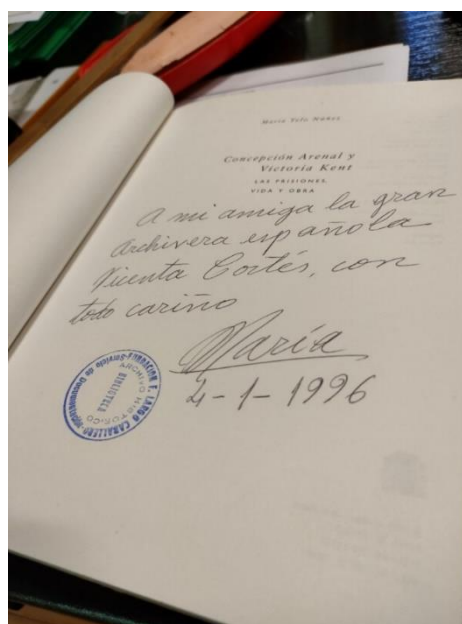 María Telo Núñez
Concepción Arenal y
Victoria Kent
LAS PRISIONES.
VIDA Y OBRA
A mi amiga la gran
Archivera española
Vicenta Cortés, con
todo cariño
María
4-1-1996
FUNDACION F. LARGO CABALLERO
Servicio de Documentación
ARCHIVO HISTORICO
BIBLIOTECA